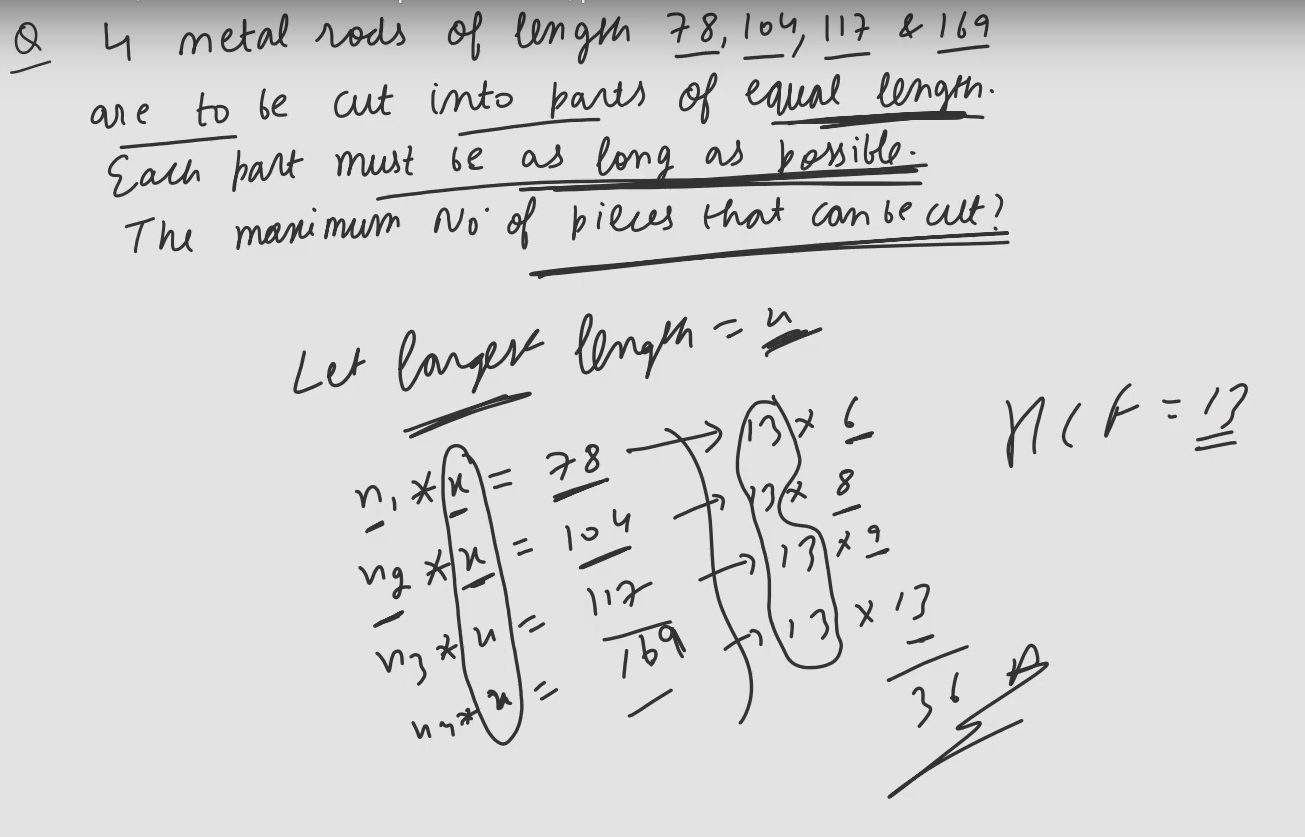 Q 4 metal rods of length 78, 104, 117 & 169
are to be cut into parts of equal length.
Each part must be as long as possible.
The maximum No. of pieces that can be cut?
Let largest length = x
HCF = 13
n1 * x = 78 → 13 × 6
n2 * x = 104 → 13 × 8
n3 * x = 117 → 13 × 9
n4 * x = 169 → 13 × 13
36 A